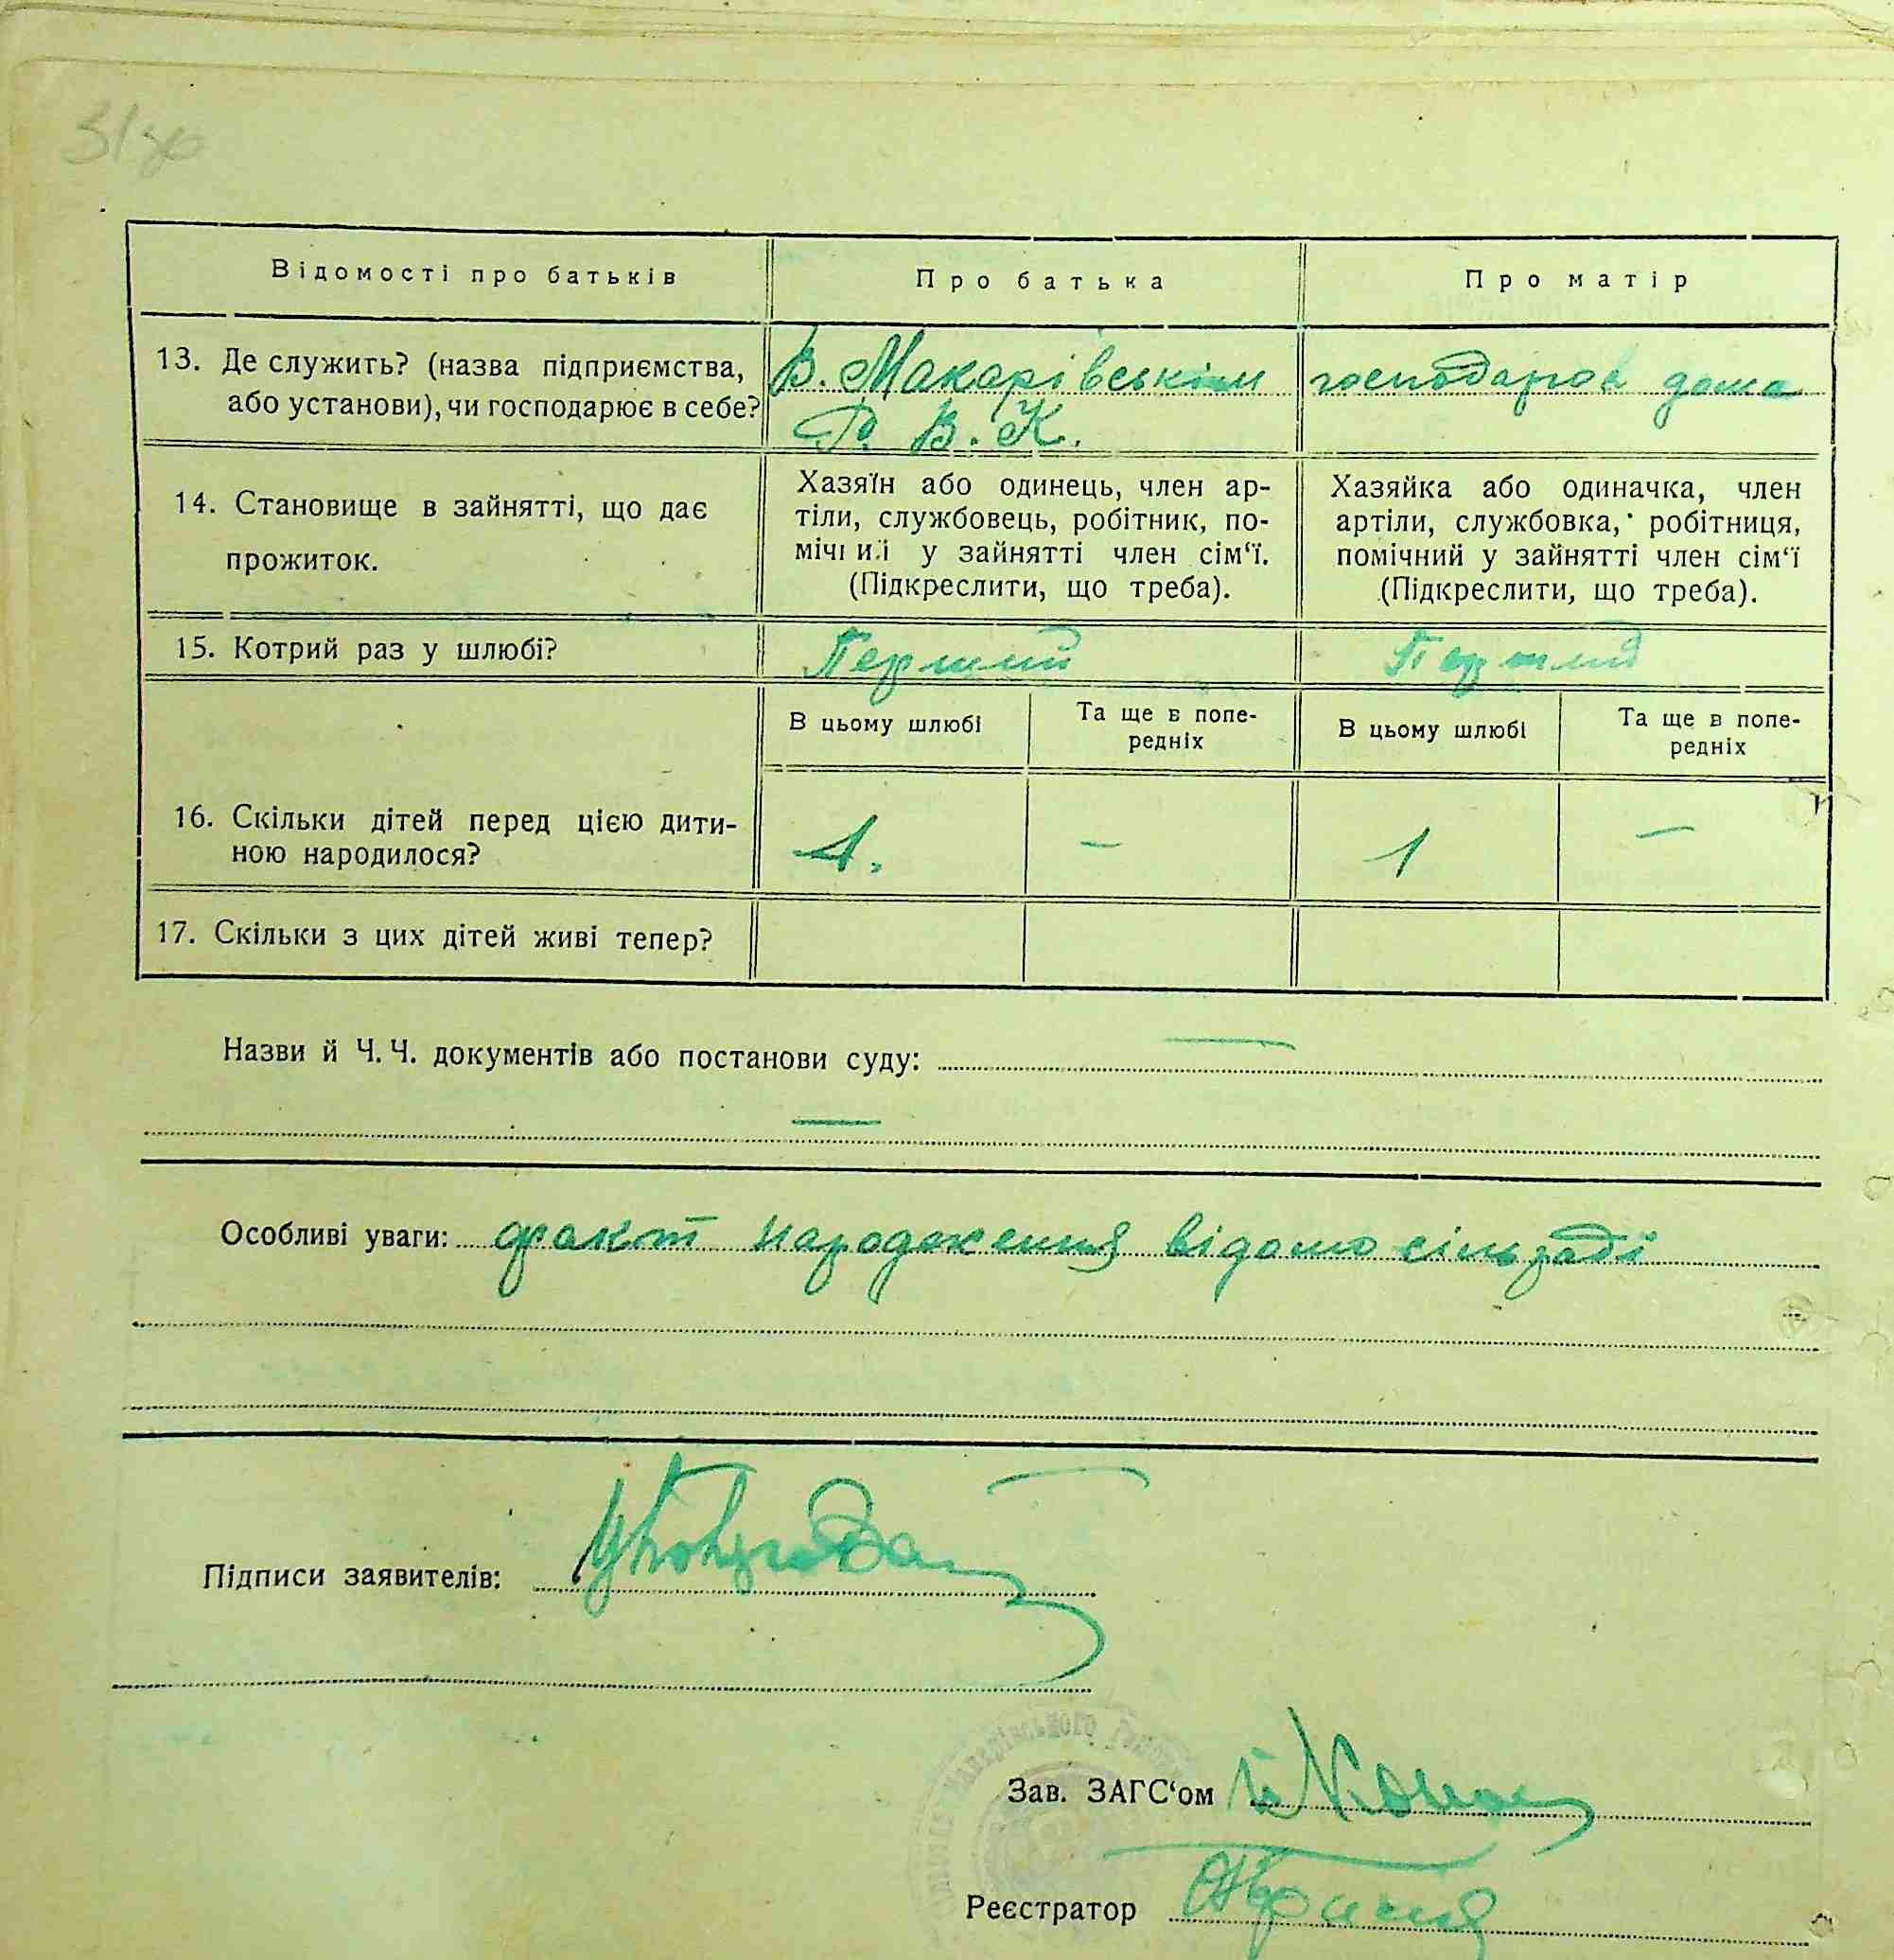 Відомості про батьків Про батька Про матір
13. Де служить? (назва підприємства, В. Макарівськім господарює дома
або установи), чи господарює в себе? Р. В. К.
14. Становище в зайнятті, що дає прожиток.
Хазяїн або одинець, член ар-
тіли, службовець, робітник, по-
мічний у зайнятті член сім‘ї.
(Підкреслити, що треба).
Хазяйка або одиначка, член
артіли, службовка, робітниця,
помічний у зайнятті член сім‘ї
(Підкреслити, що треба).
15. Котрий раз у шлюбі? Перший Перший
В цьому шлюбі Та ще в попе-
редніх В цьому шлюбі Та ще в попе-
редніх
16. Скільки дітей перед цією дити-
ною народилося? 1. – 1 –
17. Скільки з цих дітей живі тепер?
Назви й Ч. Ч. документів або постанови суду: —
—
Особливі уваги: факт народження відомо сільраді
Підписи заявителів:
Зав. ЗАГС‘ом
Реєстратор